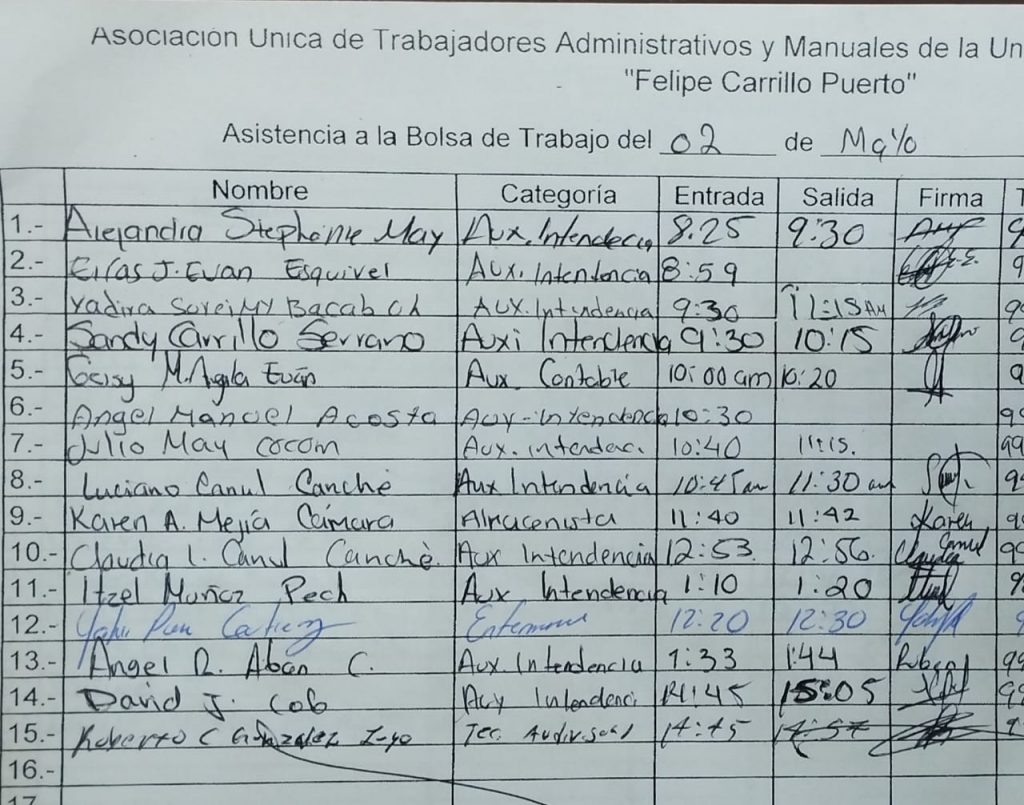 Asociación Unica de Trabajadores Administrativos y Manuales de la Un
"Felipe Carrillo Puerto"
Asistencia a la Bolsa de Trabajo del 02 de Mayo
Nombre Categoría Entrada Salida Firma T
1.- Alejandra Stephanie May Aux. Intendecia 8:25 9:30
2.- Elías J. Euan Esquivel Aux. Intentencia 8:59
3.- Yadira Bacab Ch Aux. Intendencia 9:30 11:15 AM
4.- Sandy Carrillo Serrano Auxi Intendencia 9:30 10:15
5.- Geisy M. Euán Aux. Contable 10:00 am 10:20
6.- Angel Manuel Acosta Aux-Intendencia 10:30
7.- Julio May Cocom Aux. intendec. 10:40 11:15.
8.- Luciano Canul Canche Aux Intendencia 10:45 am 11:30 am
9.- Karen A. Mejía Cámara Almacenista 11:40 11:42 Karen
10.- Claudia I. Canul Canchè. Aux Intendencia 12:53. 12:56. Claudia Canul
11.- Itzel Muñoz Pech Aux Intendencia 1:10 1:20
12.- 12:20 12:30
13.- Angel R. Aban C. Aux Intendencia 1:33 1:44
14.- David J. Cob Aux Intendenci 14:45 15:05
15.- Roberto C González Tec. Audivisual 14:45 14:57
16.-
17